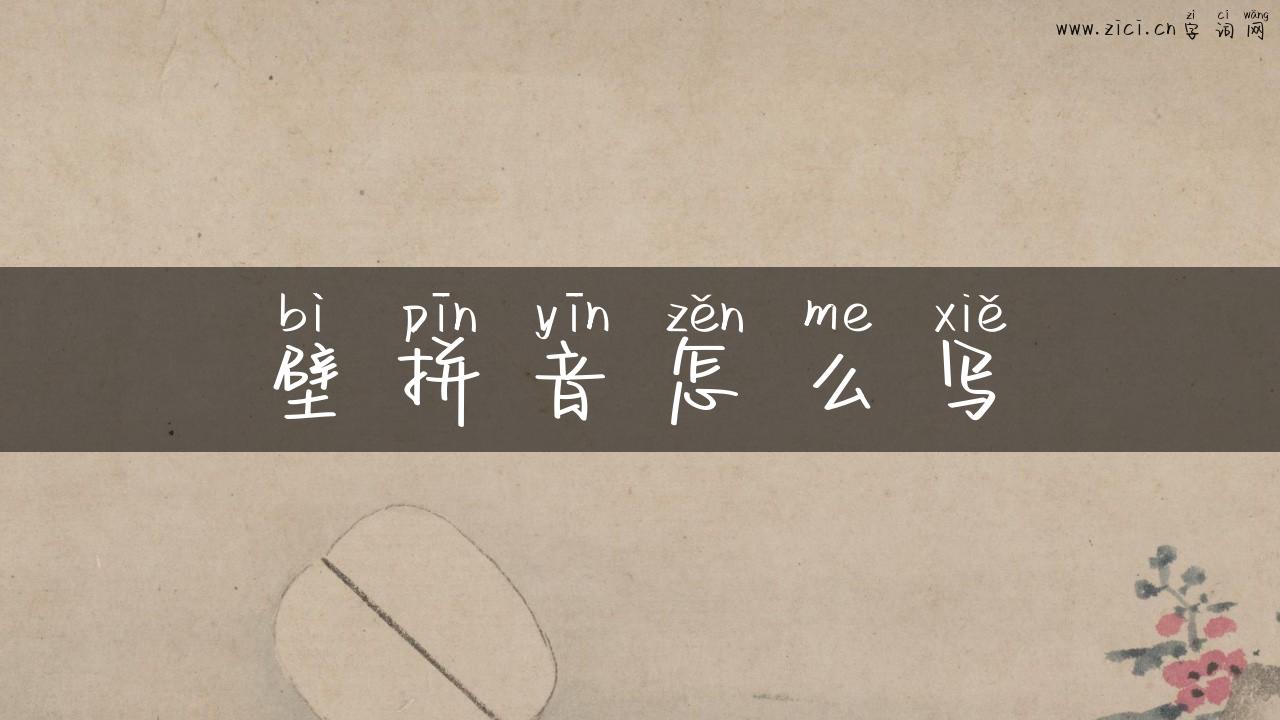 zì cí wǎng
www.zici.cn 字词网
bì pīn yīn zěn me xiě
壁拼音怎么写